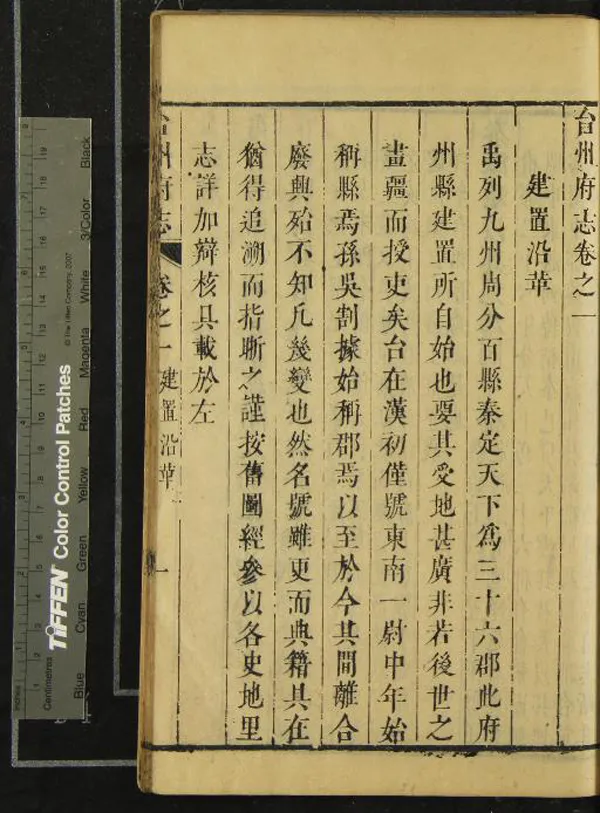 台州府志卷之一
建置沿革
禹列九州周分百縣秦定天下爲三十六郡此府
州縣建置所自始也要其受地甚廣非若後世之
畫疆而授吏矣台在漢初僅號東南一尉中年始
稱縣焉孫吳割據始稱郡焉以至於今其間離合
廢興殆不知凡幾變也然名號雖更而典籍具在
猶得追溯而指晰之謹按舊圖經參以各史地里
志詳加辯核具載於左
台州府志 卷之一 建置沿革 一
Inches
Centimetres
TIFFEN Color Control Patches
© The Tiffen Company, 2007
Blue Cyan Green Yellow Red Magenta White 3/Color Black